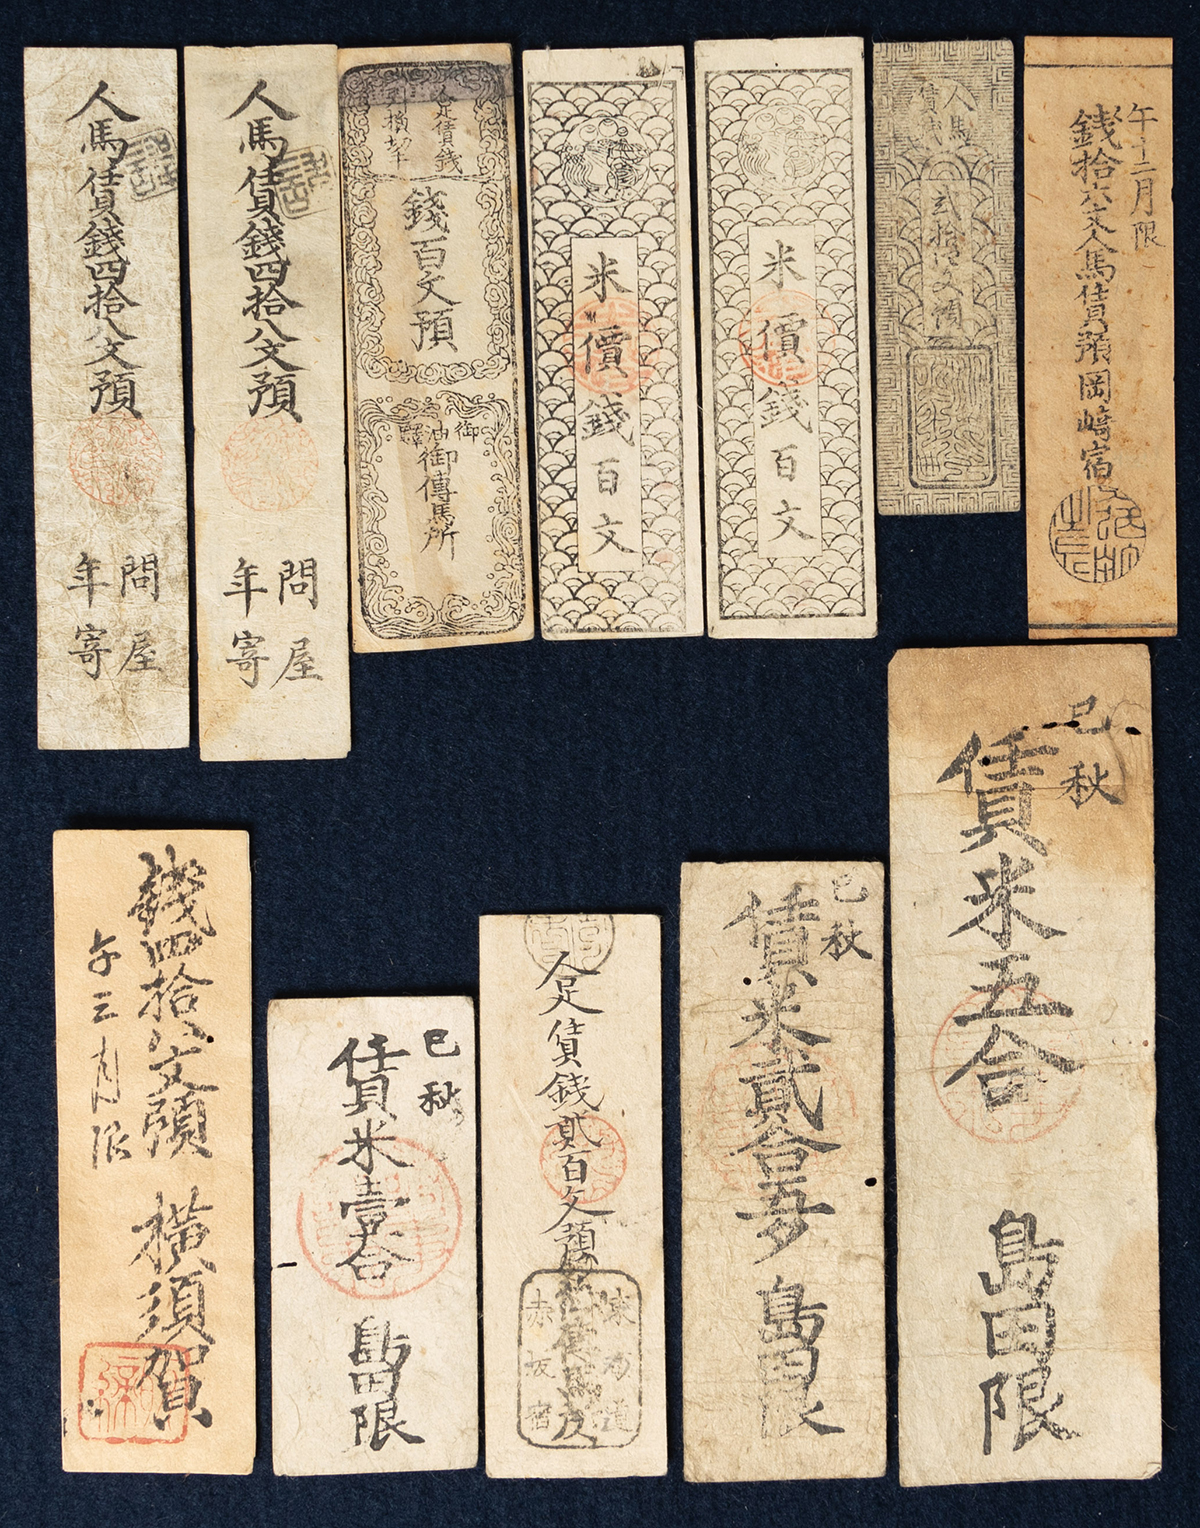 人馬賃錢四拾八文預
問屋
年寄
人馬賃錢四拾八文預
問屋
年寄
人足賃錢
引損切手
錢百文預
御油御傳馬所
米價錢百文
米價錢百文
人馬
賃錢
弐拾四文預
午十二月限
銭拾六文人馬賃預岡崎宿
錢四拾八文預 横須賀
午三月限
巳秋
賃米壹合 島田限
人足賃錢貳百文預
東海道
赤坂宿
巳秋
賃米貳合五夕 島田限
巳秋
賃米五合 島田限